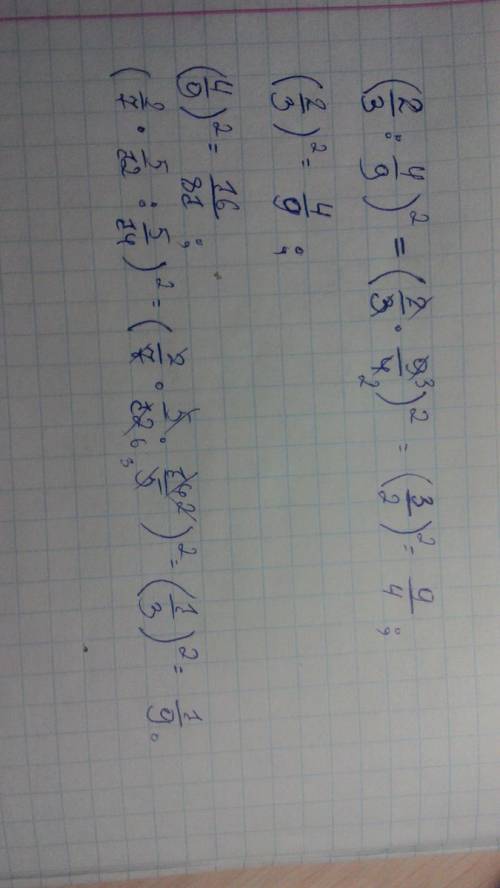 (2/3 : 4/9)² = (2/3 · 9³/4₂)² = (3/2)² = 9/4 ;
(2/3)² = 4/9 ;
(4/9)² = 16/81 ;
(2/7 · 5/12 : 5/14)² = (2/7 · 5/12₆₃ · 14²/5)² = (1/3)² = 1/9.